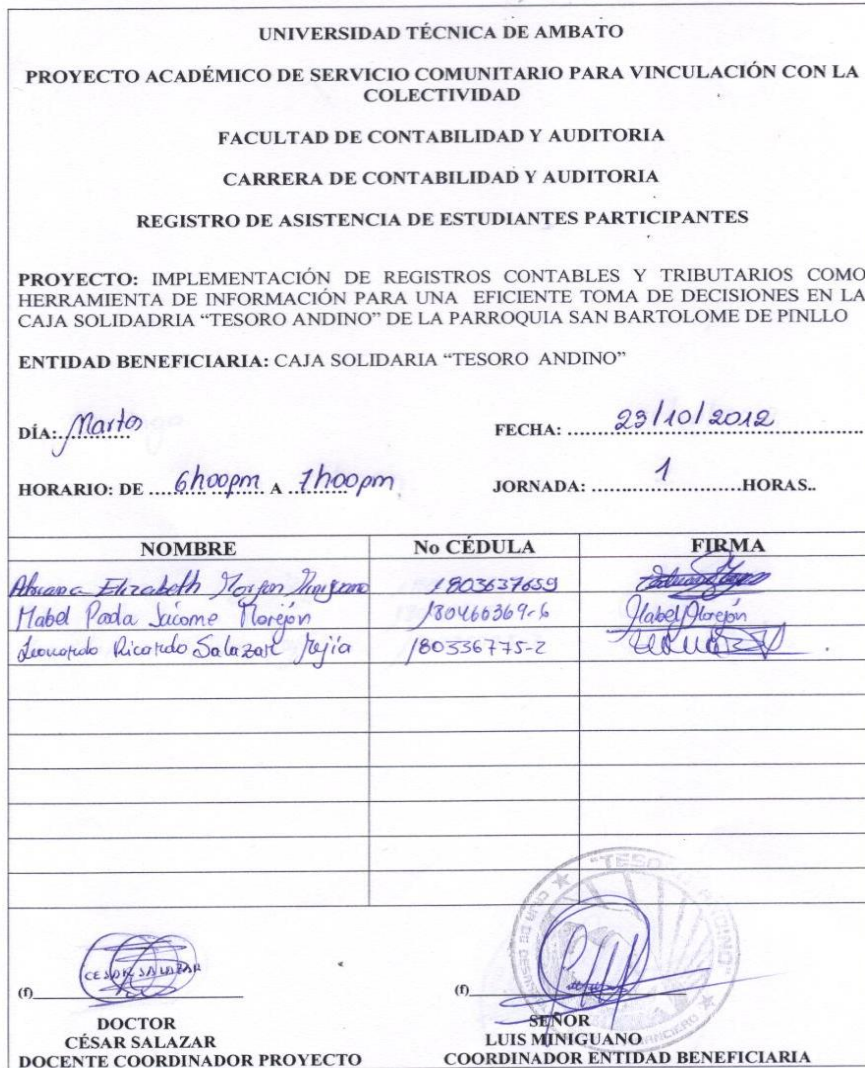 UNIVERSIDAD TÉCNICA DE AMBATO
PROYECTO ACADÉMICO DE SERVICIO COMUNITARIO PARA VINCULACIÓN CON LA
COLECTIVIDAD
FACULTAD DE CONTABILIDAD Y AUDITORIA
CARRERA DE CONTABILIDAD Y AUDITORIA
REGISTRO DE ASISTENCIA DE ESTUDIANTES PARTICIPANTES
PROYECTO: IMPLEMENTACIÓN DE REGISTROS CONTABLES Y TRIBUTARIOS COMO
HERRAMIENTA DE INFORMACIÓN PARA UNA EFICIENTE TOMA DE DECISIONES EN LA
CAJA SOLIDADRIA “TESORO ANDINO” DE LA PARROQUIA SAN BARTOLOME DE PINLLO
ENTIDAD BENEFICIARIA: CAJA SOLIDARIA “TESORO ANDINO”
DÍA: Martes FECHA: 23/10/2012
HORARIO: DE 6h00pm A 7h00pm JORNADA: 1 HORAS..
NOMBRE No CÉDULA FIRMA
Elizabeth 1803637659
Mabel Paola Jácome Morejón 180460369-6 Mabel Morejón
Leonardo Ricardo Salazar Mejía 180336775-2
CESAR SALAZAR
"TESO ANDINO"
(f) (f)
DOCTOR SEÑOR
CÉSAR SALAZAR LUIS MINIGUANO
DOCENTE COORDINADOR PROYECTO COORDINADOR ENTIDAD BENEFICIARIA